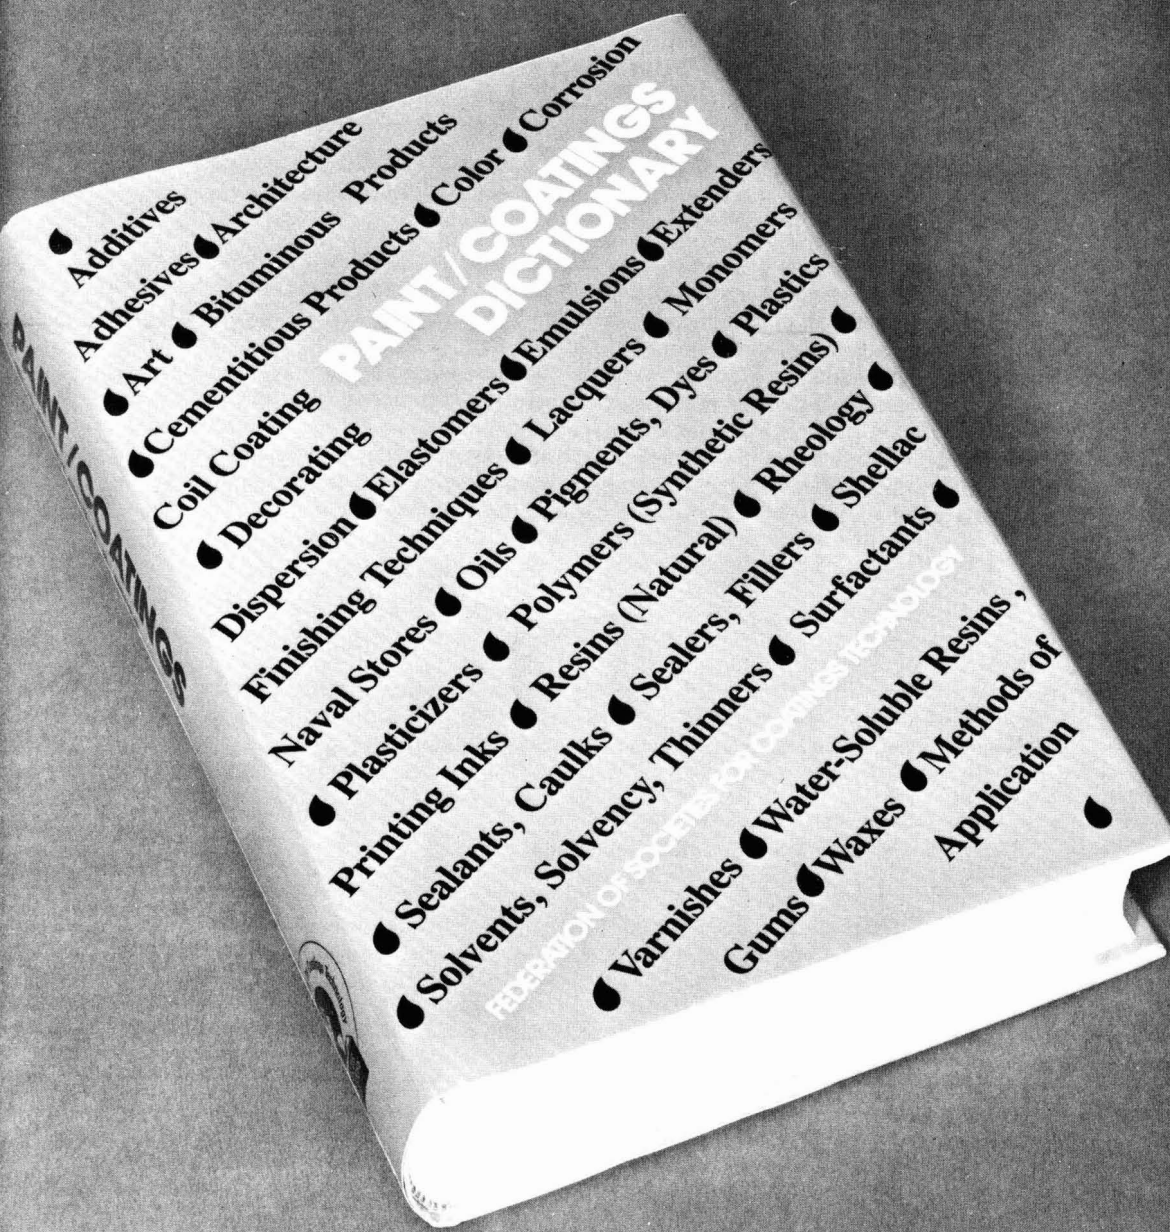 Additives
Adhesives Architecture
Art Bituminous Products
Cementitious Products Color Corrosion
PAINT/COATINGS
DICTIONARY
Coil Coating
Decorating
Dispersion Elastomers Emulsions Extenders
Finishing Techniques Lacquers Monomers
Naval Stores Oils Pigments, Dyes Plastics
Plasticizers Polymers (Synthetic Resins)
Printing Inks Resins (Natural) Rheology
Sealants, Caulks Sealers, Fillers Shellac
Solvents, Solvency, Thinners Surfactants
FEDERATION OF SOCIETIES FOR COATINGS TECHNOLOGY
Varnishes Water-Soluble Resins,
Gums Waxes Methods of
Application
PAINT/COATINGS